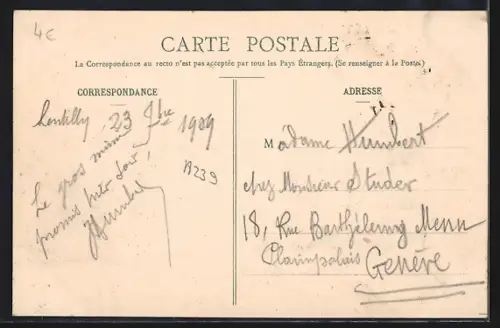 4€
CARTE POSTALE
La Correspondance au recto n'est pas acceptée par tous les Pays Étrangers. (Se renseigner à la Poste.)
CORRESPONDANCE
Lentilly, 23 7bre 1909
Le gros mimi
promis
JHumbert
A239
ADRESSE
Madame Humbert
chez Monsieur Studer
18, Rue Barthélemy Menn
Plainpalais
Genève